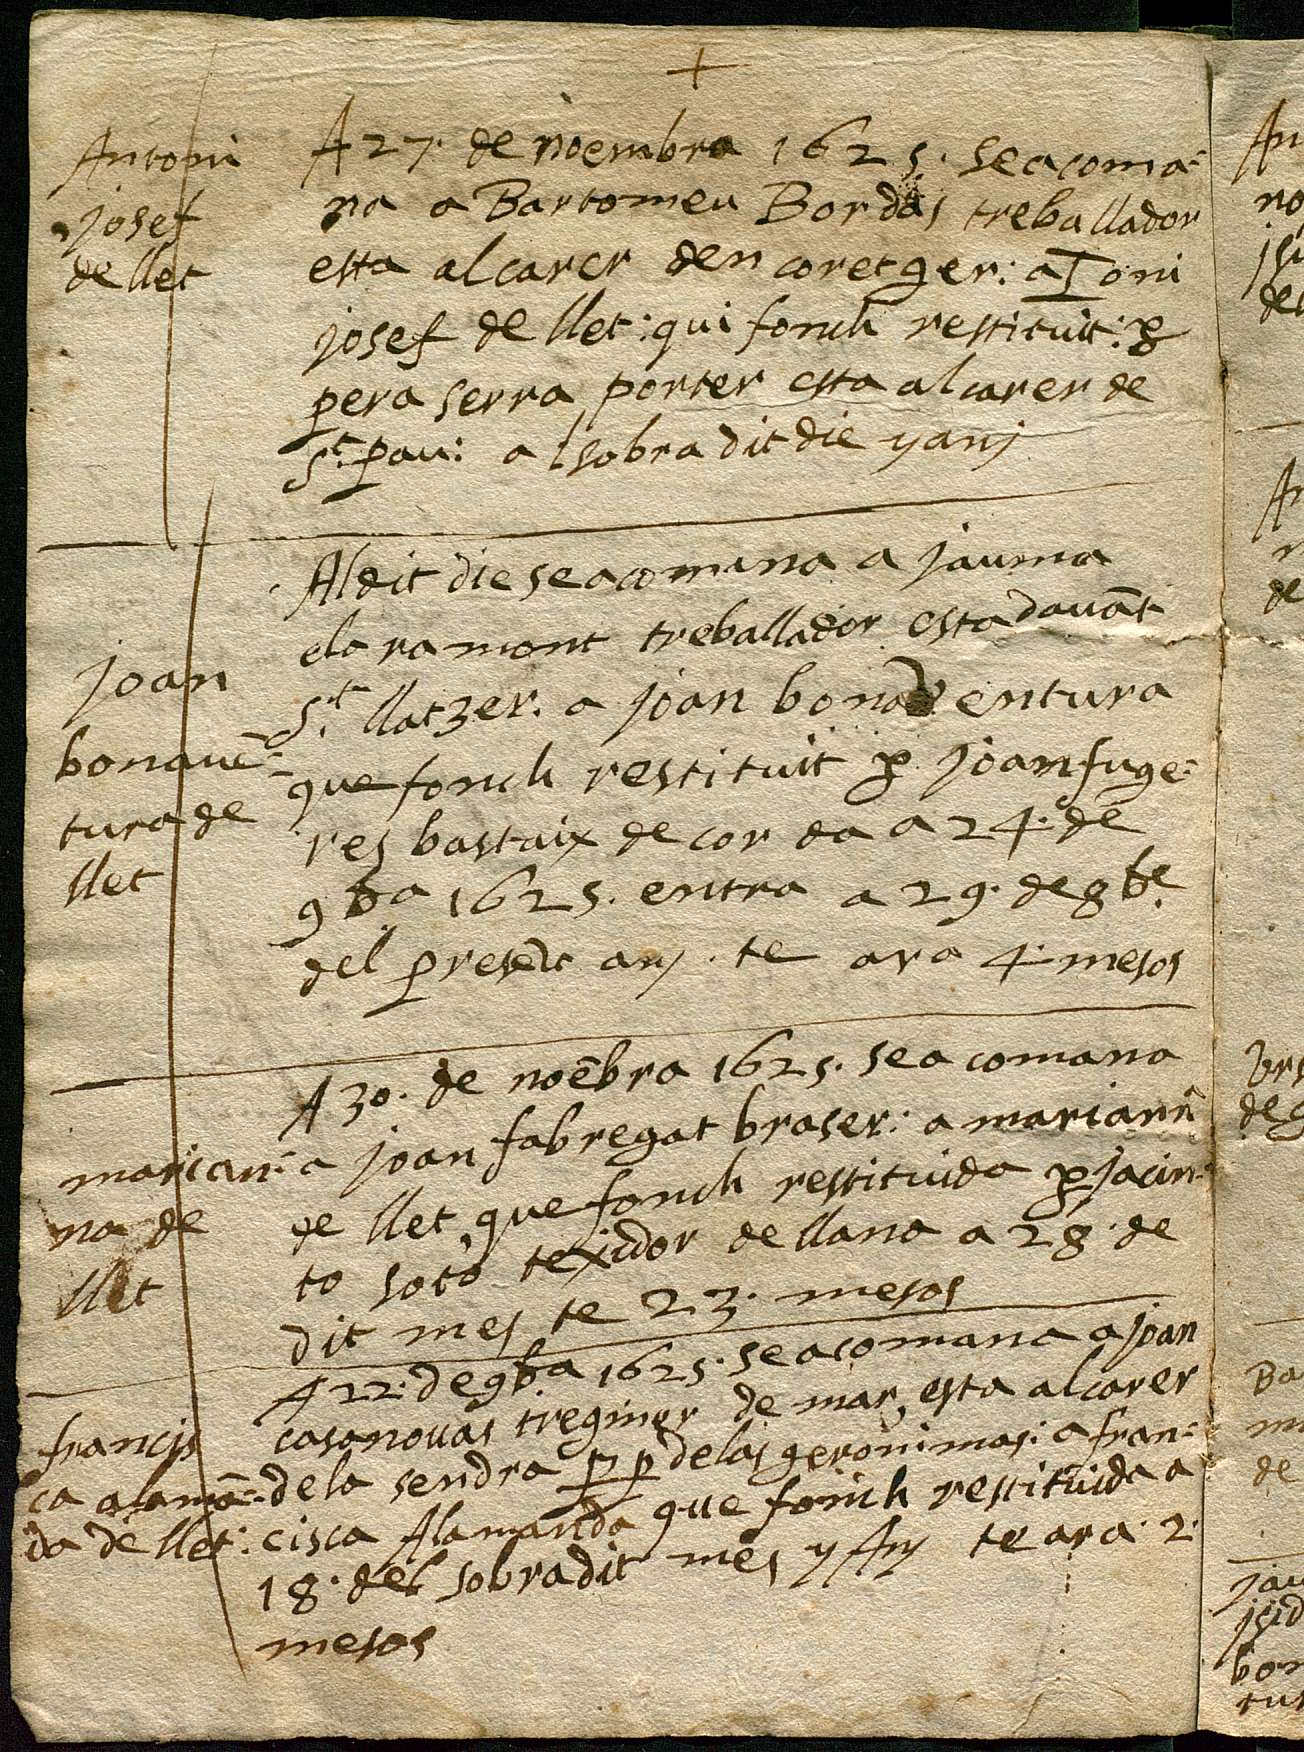 +
Antoni
josef
de llet
A 27. de noembra 1625. se acoma-
na a Bartomeu Bordas treballador
esta al carer den coretger: a Toni
josef de llet: qui fonch restituit: p
pera serra porter esta al carer de
St. pau: al sobra dit die y any
joan
bonauē-
tura de
llet
Al dit die se acomana a jauma
claramont treballador esta dauāt
St. llatzer. a joan bonaventura
que fonch restituit p. joan fuge-
res bastaix de cor da a 24. de
9bra 1625. entra a 29. de 8bre
del presēt any. te ara 4. mesos
marian-
na de
llet
A 30. de noēbra 1625. se a comana
a joan fabregat braser: a mariann
de llet que fonch restituida p jacin-
to soto texidor de llana a 28. de
dit mes te 23. mesos
francis
ca alamā-
da de llet:
A 22. de 9bra 1625. se acomana a joan
casanouas treginer de mar, esta al carer
de la sendra p p de las geronimas: a fran-
cisca Alamanda que fonch restituida a
18. del sobradit mes y Any te ara 2.
mesos
An
no
de